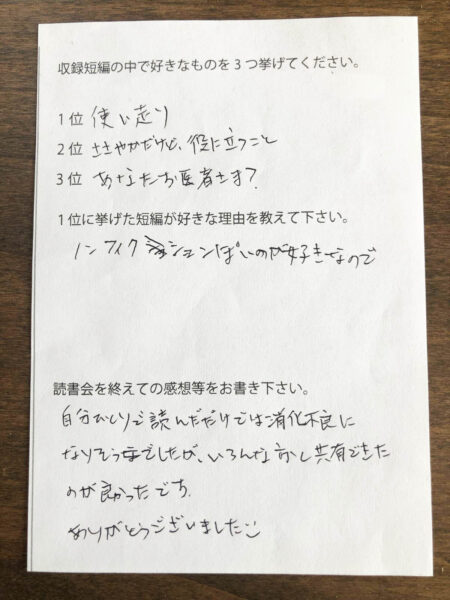 収録短編の中で好きなものを3つ挙げてください。
1位 使い走り
2位 ささやかだけど、役に立つこと
3位 あなたお医者さま?
1位に挙げた短編が好きな理由を教えて下さい。
ノンフィクションぽいのが好きなので
読書会を終えての感想等をお書き下さい。
自分ひとりで読んだだけでは消化不良に
なりそうでしたが、いろんな方と共有できた
のが良かったです。
ありがとうございました